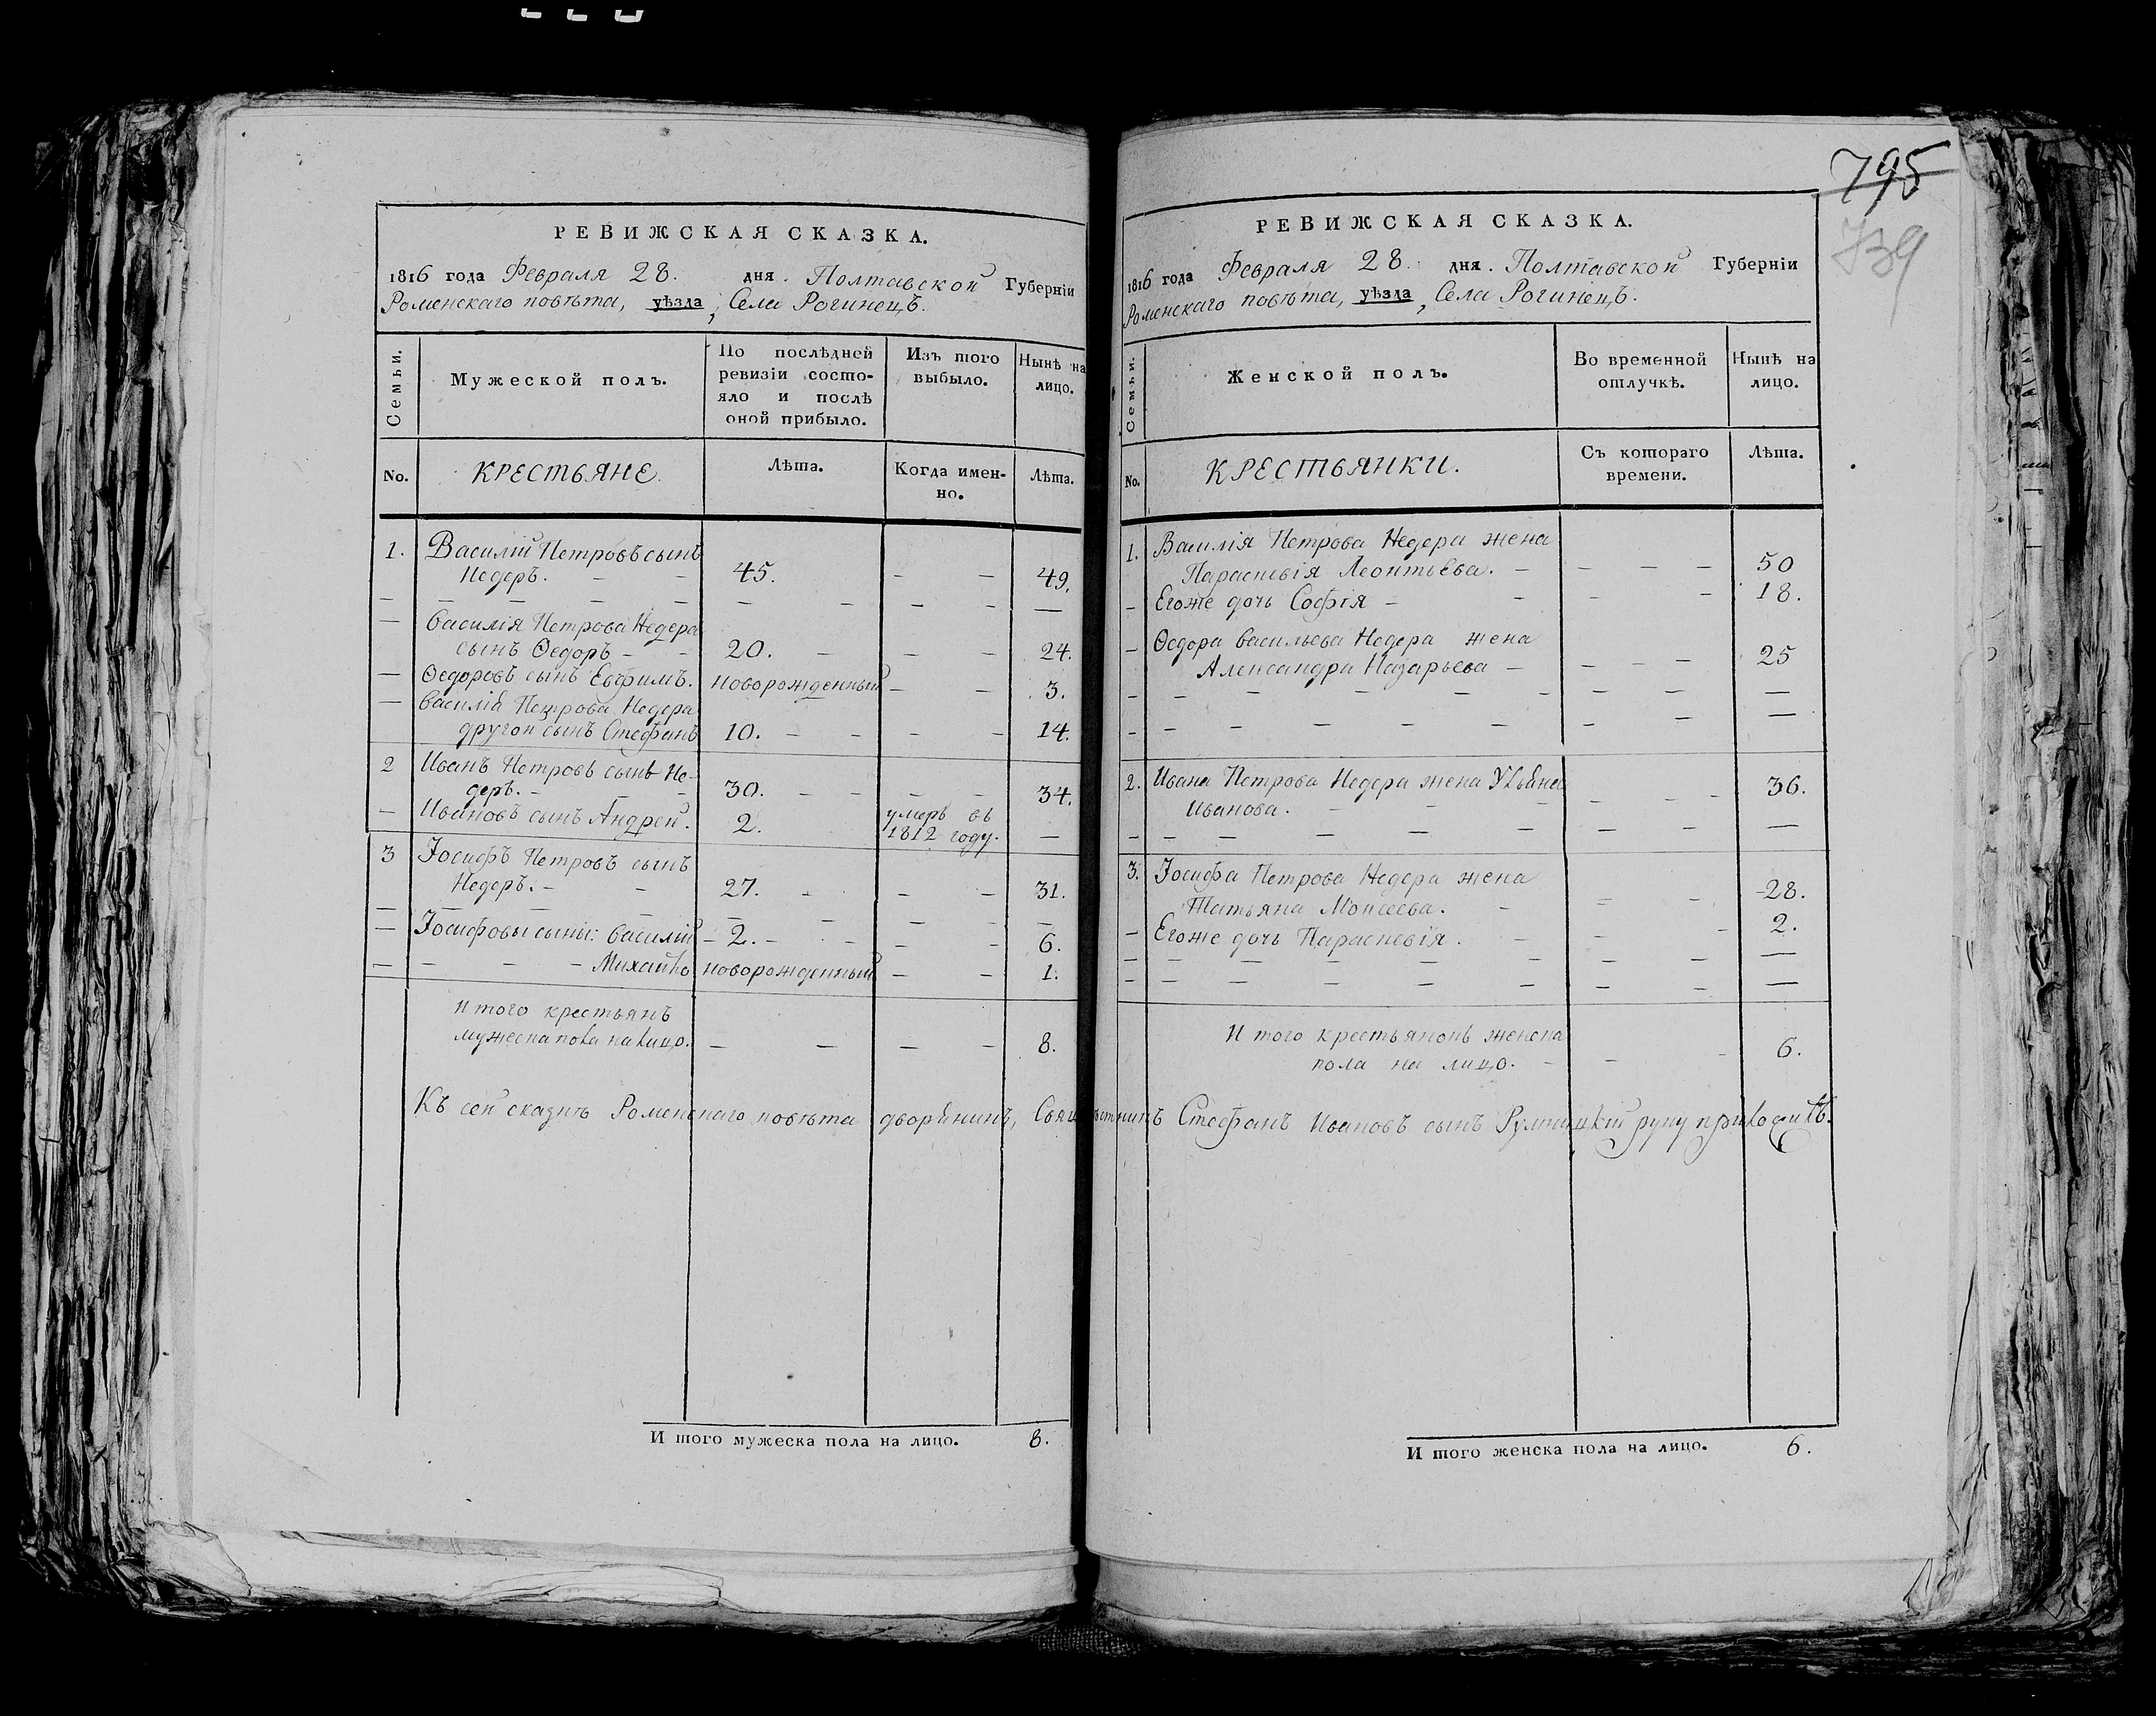 РЕВИЖСКАЯ СКАЗКА.
1816 года Февраля 28. дня. Полтавской Губерніи
Роменскаго повѣта, уѣзда, Села Рогинецъ.
Семьи.
Мужеской полъ.
По послѣдней
ревизіи состо-
яло и послѣ
оной прибыло.
Изъ того
выбыло.
Нынѣ на
лицо.
No.
КРЕСТЬЯНЕ.
Лѣта.
Когда имен-
но.
Лѣта.
1. Василій Петровъ сынъ
Недеръ. - - 45. - - 49.
Василія Петрова Недера
сынъ Ѳедоръ - - 20. - - - 24.
Ѳедоровъ сынъ Евфимъ. новорожденный - - 3.
Василія Петрова Недера
другой сынъ Стефанъ 10. - - - - 14.
2 Иванъ Петровъ сынъ Не-
деръ. - - - 30. - - - - 34.
Ивановъ сынъ Андрей. 2. умеръ въ
1812 году. —
3 Іосифъ Петровъ сынъ
Недеръ. - - 27. - - - 31.
Іосифовы сыны: Василій - 2. - - - - 6.
Михайло новорожденный - - 1.
Итого крестьянъ
мужеска пола на лицо. - - - - 8.
И того мужеска пола на лицо. 8.
795
739
РЕВИЖСКАЯ СКАЗКА.
1816 года Февраля 28. дня. Полтавской Губерніи
Роменскаго повѣта, уѣзда, Села Рогинецъ.
Семьи.
Женской полъ.
Во временной
отлучкѣ.
Нынѣ на
лицо.
No.
КРЕСТЬЯНКИ.
Съ котораго
времени.
Лѣта.
1. Василія Петрова Недера жена
Параскевія Леонтьева. - - - - 50
Егоже дочь Софія - - - - 18.
Ѳедора Васильева Недера жена
Александра Назарьева - - - - 25
2. Ивана Петрова Недера жена Ульяна
Иванова. - - - - - - 36.
3. Іосифа Петрова Недера жена
Татьяна Моисеева. - - - 28.
Егоже дочь Параскевія. - - - 2.
Итого крестьянокъ женска
пола на лицо. - - - 6.
Къ сей сказкѣ Роменскаго повѣта дворянинъ, Стефанъ Ивановъ сынъ руку приложилъ.
И того женска пола на лицо. 6.